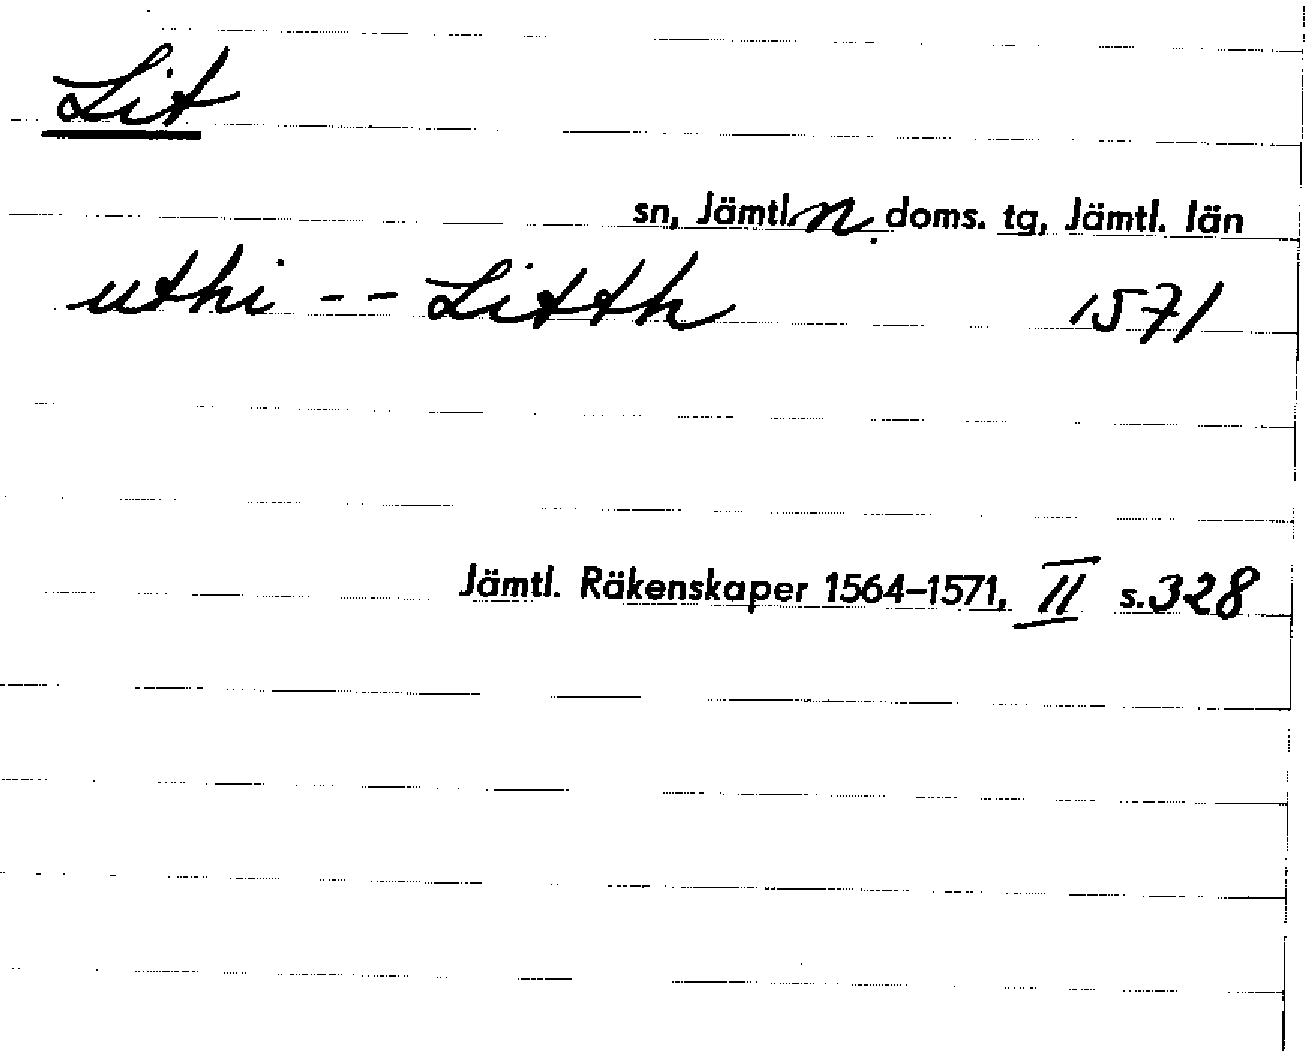 Lit
sn, Jämtl. n. doms. tg, Jämtl. län
uthi -- Litth 1571
Jämtl. Räkenskaper 1564–1571, II s. 328